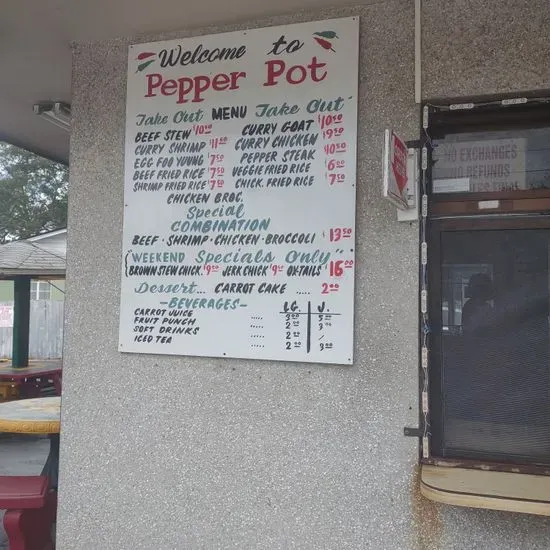 Welcome to
Pepper Pot
Take Out MENU Take Out
BEEF STEW $10.00 CURRY GOAT $10.00
CURRY SHRIMP $11.50 CURRY CHICKEN $9.50
EGG FOO YOUNG $7.50 PEPPER STEAK $10.50
BEEF FRIED RICE $7.50 VEGGIE FRIED RICE $6.00
SHRIMP FRIED RICE $7.50 CHICK. FRIED RICE $7.50
CHICKEN BROC.
Special
COMBINATION
BEEF · SHRIMP · CHICKEN · BROCCOLI $13.50
"WEEKEND Specials Only"
BROWN STEW CHICK. $9.50 JERK CHICK $9.50 OX-TAILS $16.00
Dessert... CARROT CAKE ... 2.00
-BEVERAGES- LG. J.
CARROT JUICE ..... 3.00 5.00
FRUIT PUNCH ..... 2.00 3.00
SOFT DRINKS ..... 2.00 /
ICED TEA ..... 2.00 3.00
NO EXCHANGES
NO REFUNDS